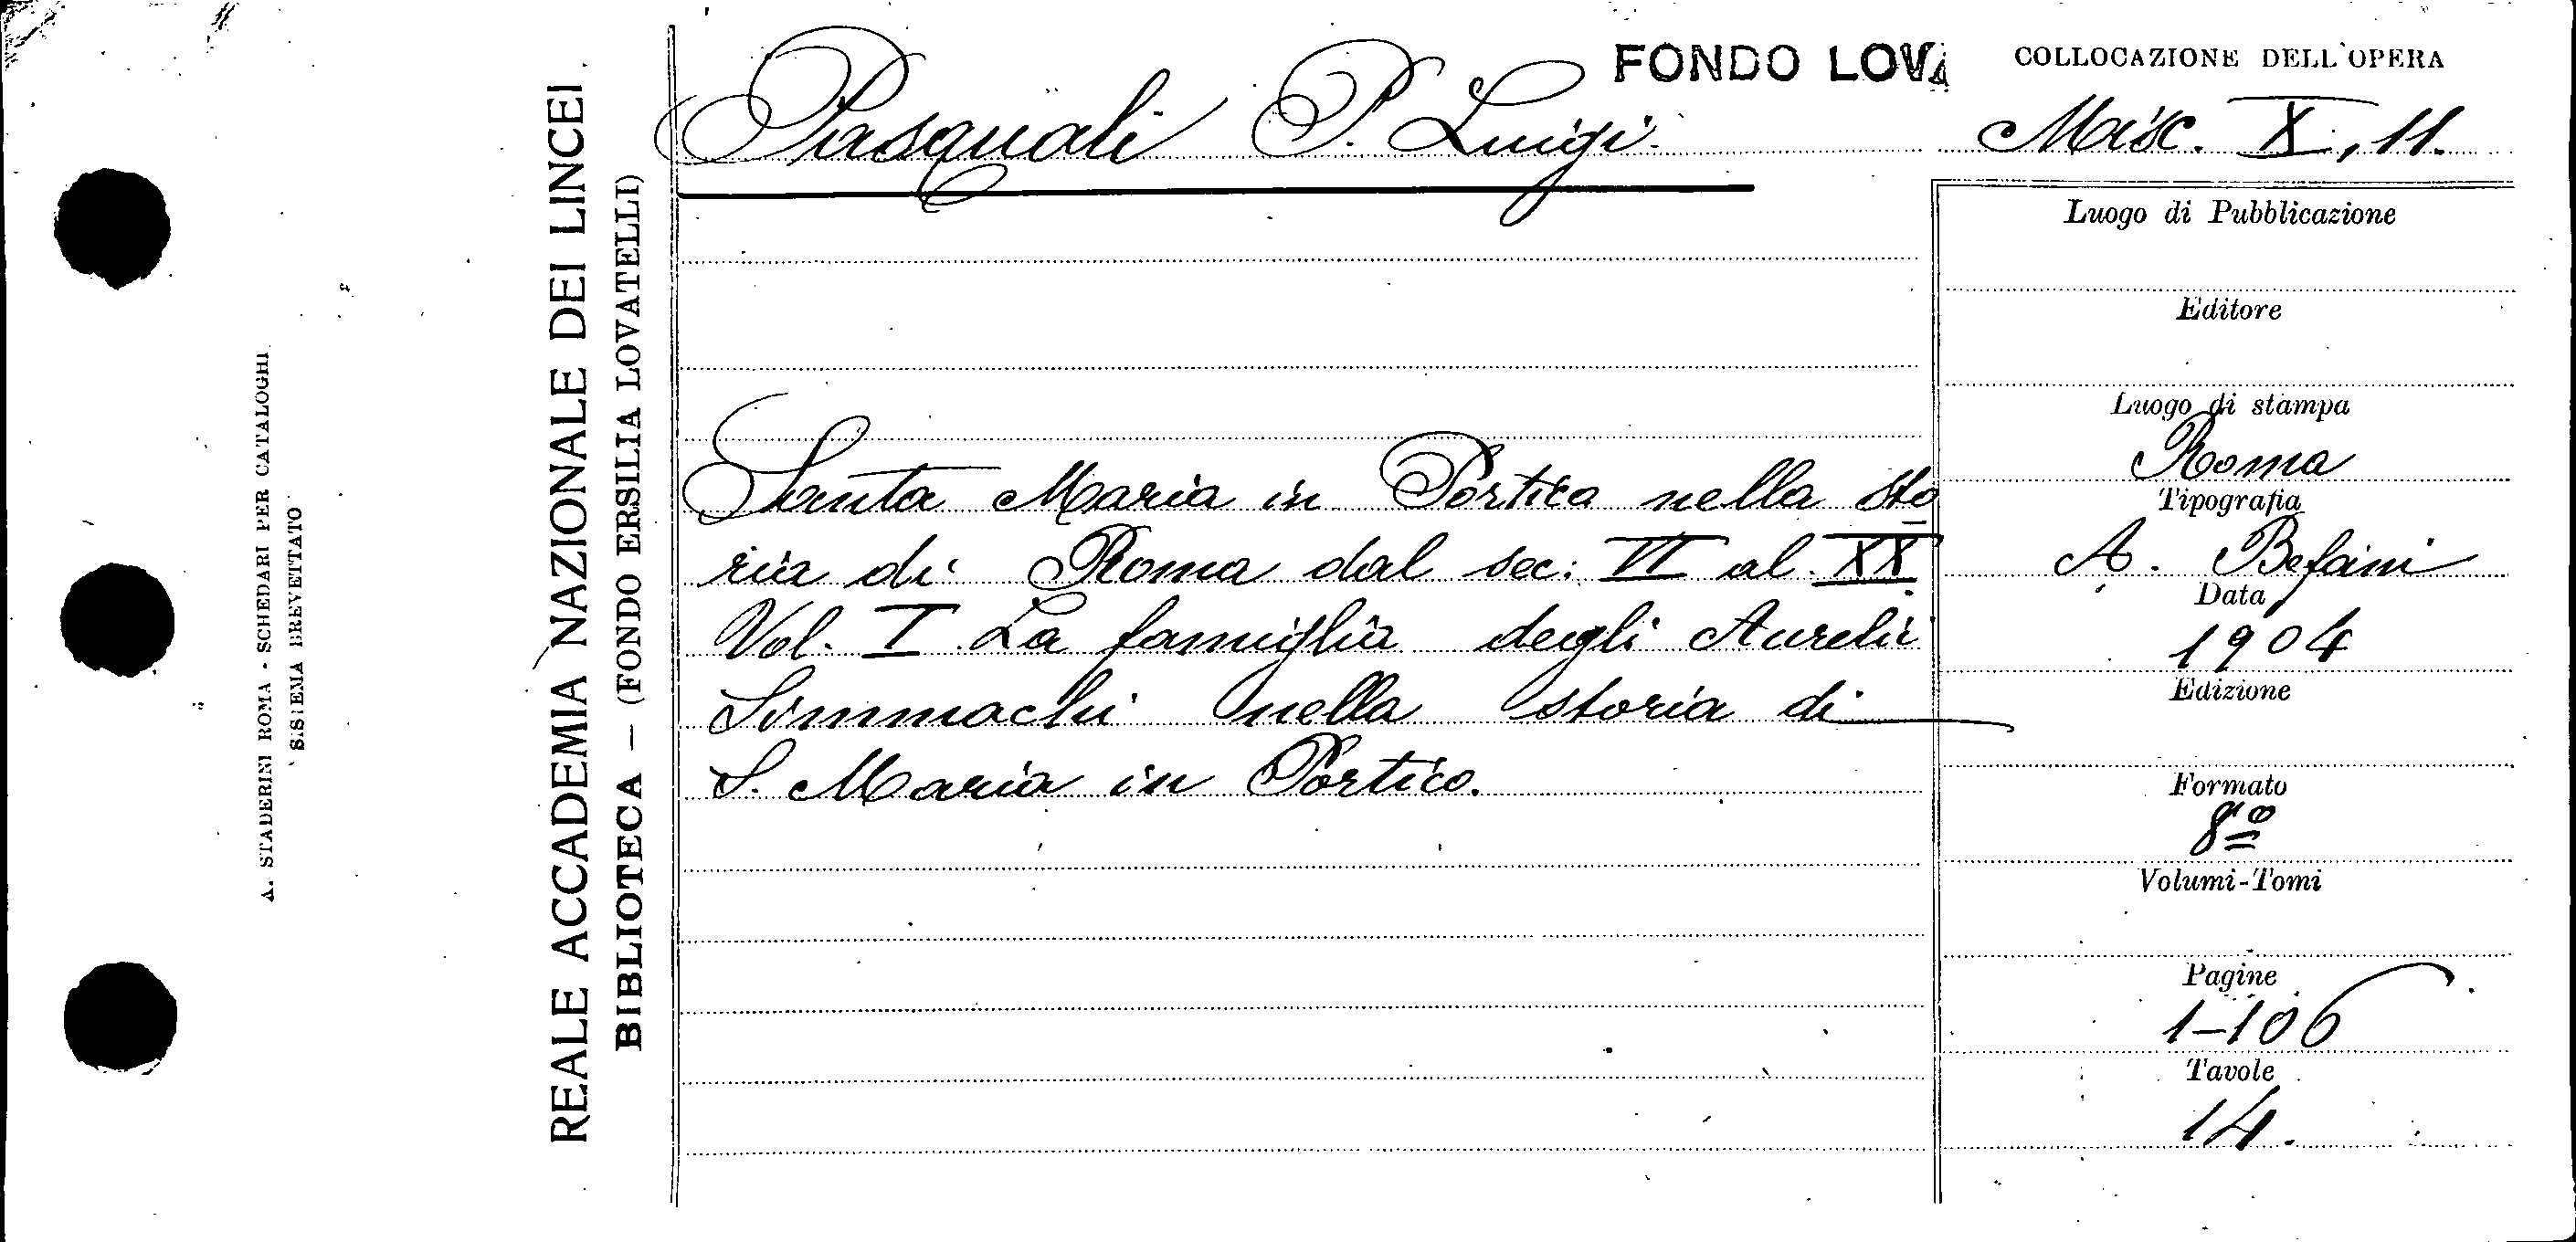 A. STADERINI ROMA - SCHEDARI PER CATALOGHI
SISTEMA BREVETTATO
REALE ACCADEMIA NAZIONALE DEI LINCEI
BIBLIOTECA — (FONDO ERSILIA LOVATELLI)
Pasquali P. Luigi.
FONDO LOVA
COLLOCAZIONE DELL'OPERA
Misc. X, 11.
Santa Maria in Portico nella sto
ria di Roma dal sec: VI al XX
Vol. I La famiglia degli Aurelii
Simmachi nella storia di
S. Maria in Portico.
Luogo di Pubblicazione
Editore
Luogo di stampa
Roma
Tipografia
A. Befani
Data
1904
Edizione
Formato
8º
Volumi-Tomi
Pagine
1-106
Tavole
14.